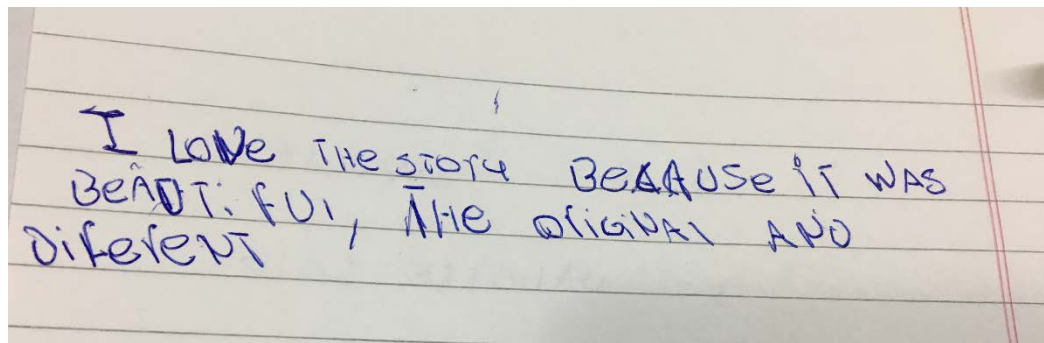 I LOVE THE STORY BECAUSE IT WAS
BEAUTIFUL, THE ORIGINAL AND
DIFERENT